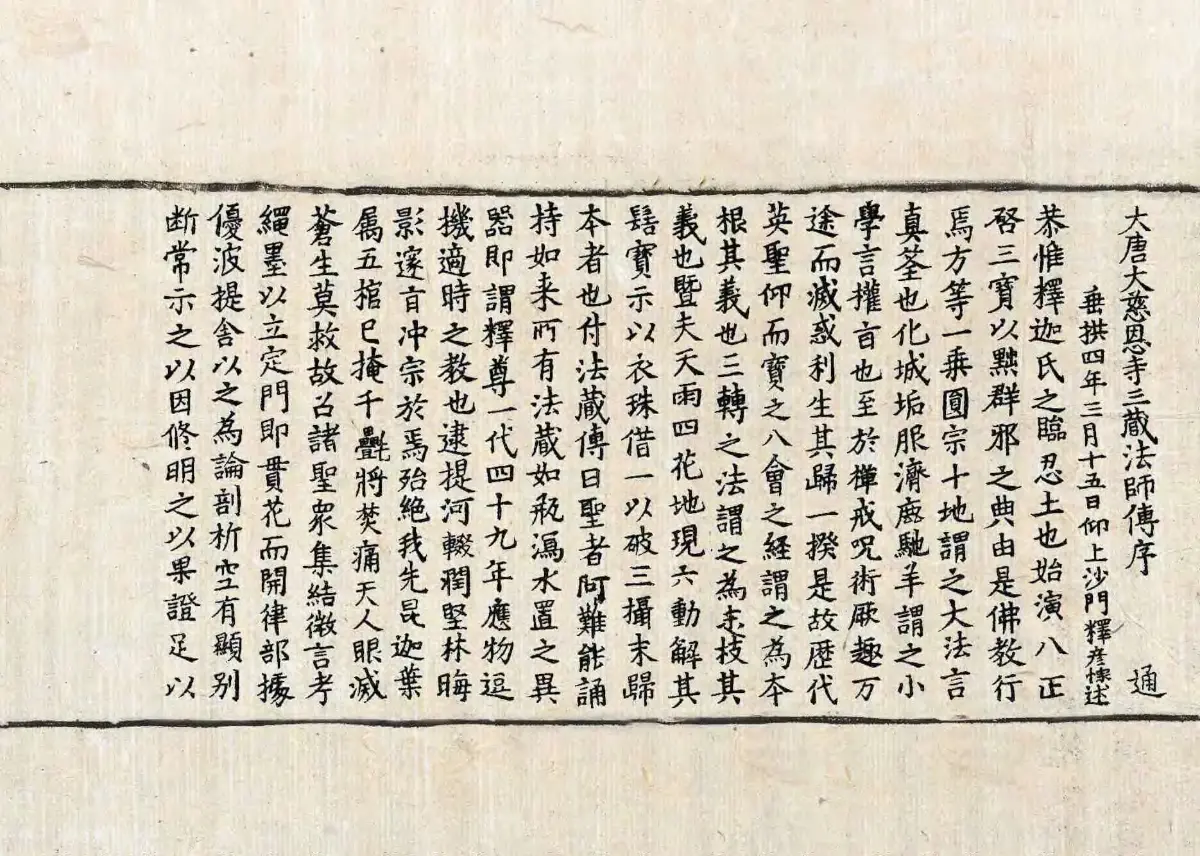 大唐大慈恩寺三藏法師傳序 通
垂拱四年三月十五日仰上沙門釋彥悰述
恭惟釋迦氏之臨忍土也始演八正
啓三寶以黜群邪之典由是佛教行
焉方等一乗圓宗十地謂之大法言
真荃也化城垢服濟鹿馳羊謂之小
學言權旨也至於禪戒呪術厥趣万
途而滅惑利生其歸一揆是故歷代
英聖仰而寶之八會之経謂之為本
根其義也三轉之法謂之為末枝其
義也暨夫天雨四花地現六動解其
髻寶示以衣珠借一以破三攝末歸
本者也付法蔵傳曰聖者阿難能誦
持如来所有法蔵如瓶瀉水置之異
器即謂釋尊一代四十九年應物逗
機適時之教也逮提河輟潤堅林晦
影邃旨冲宗於焉殆絶我先昆迦葉
属五棺已掩千㲲將焚痛天人眼滅
蒼生莫救故召諸聖衆集結微言考
繩墨以立定門即貫花而開律部據
優波提舍以之為論剖析空有顯別
断常示之以因修明之以果證足以